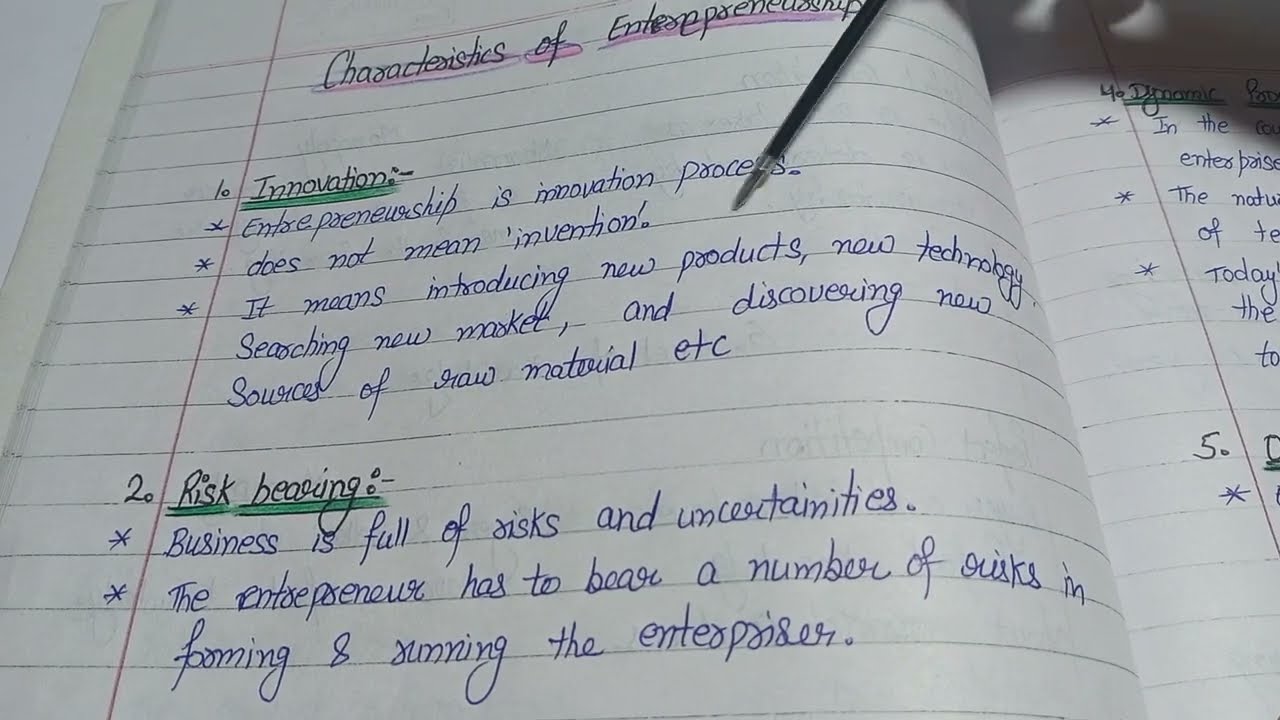 Characteristics of Enterpreneurship
1. Innovation:-
* Entrepreneurship is innovation process.
* does not mean 'invention'.
* It means introducing new products, new technology,
Searching new market, and discovering new
Sources of raw material etc
2. Risk bearing:-
* Business is full of risks and uncertainities.
* The entrepreneur has to bear a number of risks in
forming & running the enterpriser.
4. Dynamic
* In the
enterprise
* The
of
* Today
the
to
5.
*